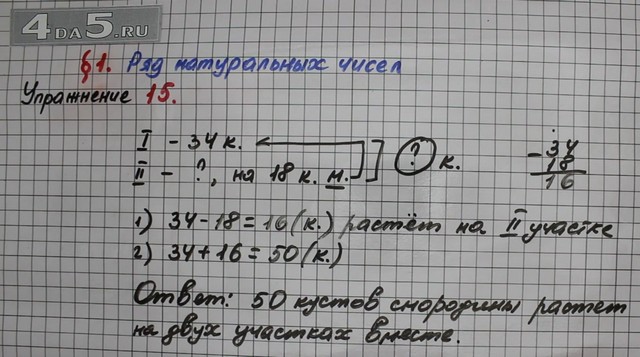 4DA5.RU
§1. Ряд натуральных чисел
Упражнение 15.
I - 34 к.
II - ?, на 18 к. м.
? к.
- 34
18
16
1) 34-18=16 (к.) растёт на II участке
2) 34+16=50 (к.)
Ответ: 50 кустов смородины растет
на двух участках вместе.